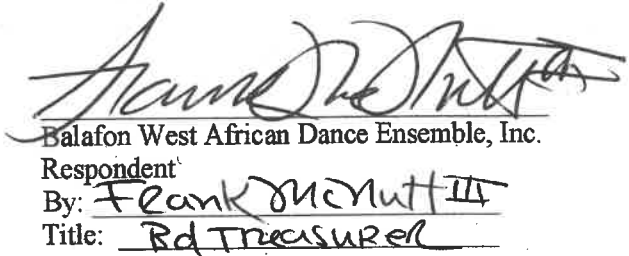 Frank McNutt III
Balafon West African Dance Ensemble, Inc.
Respondent
By: Frank McNutt III
Title: Bd Treasurer